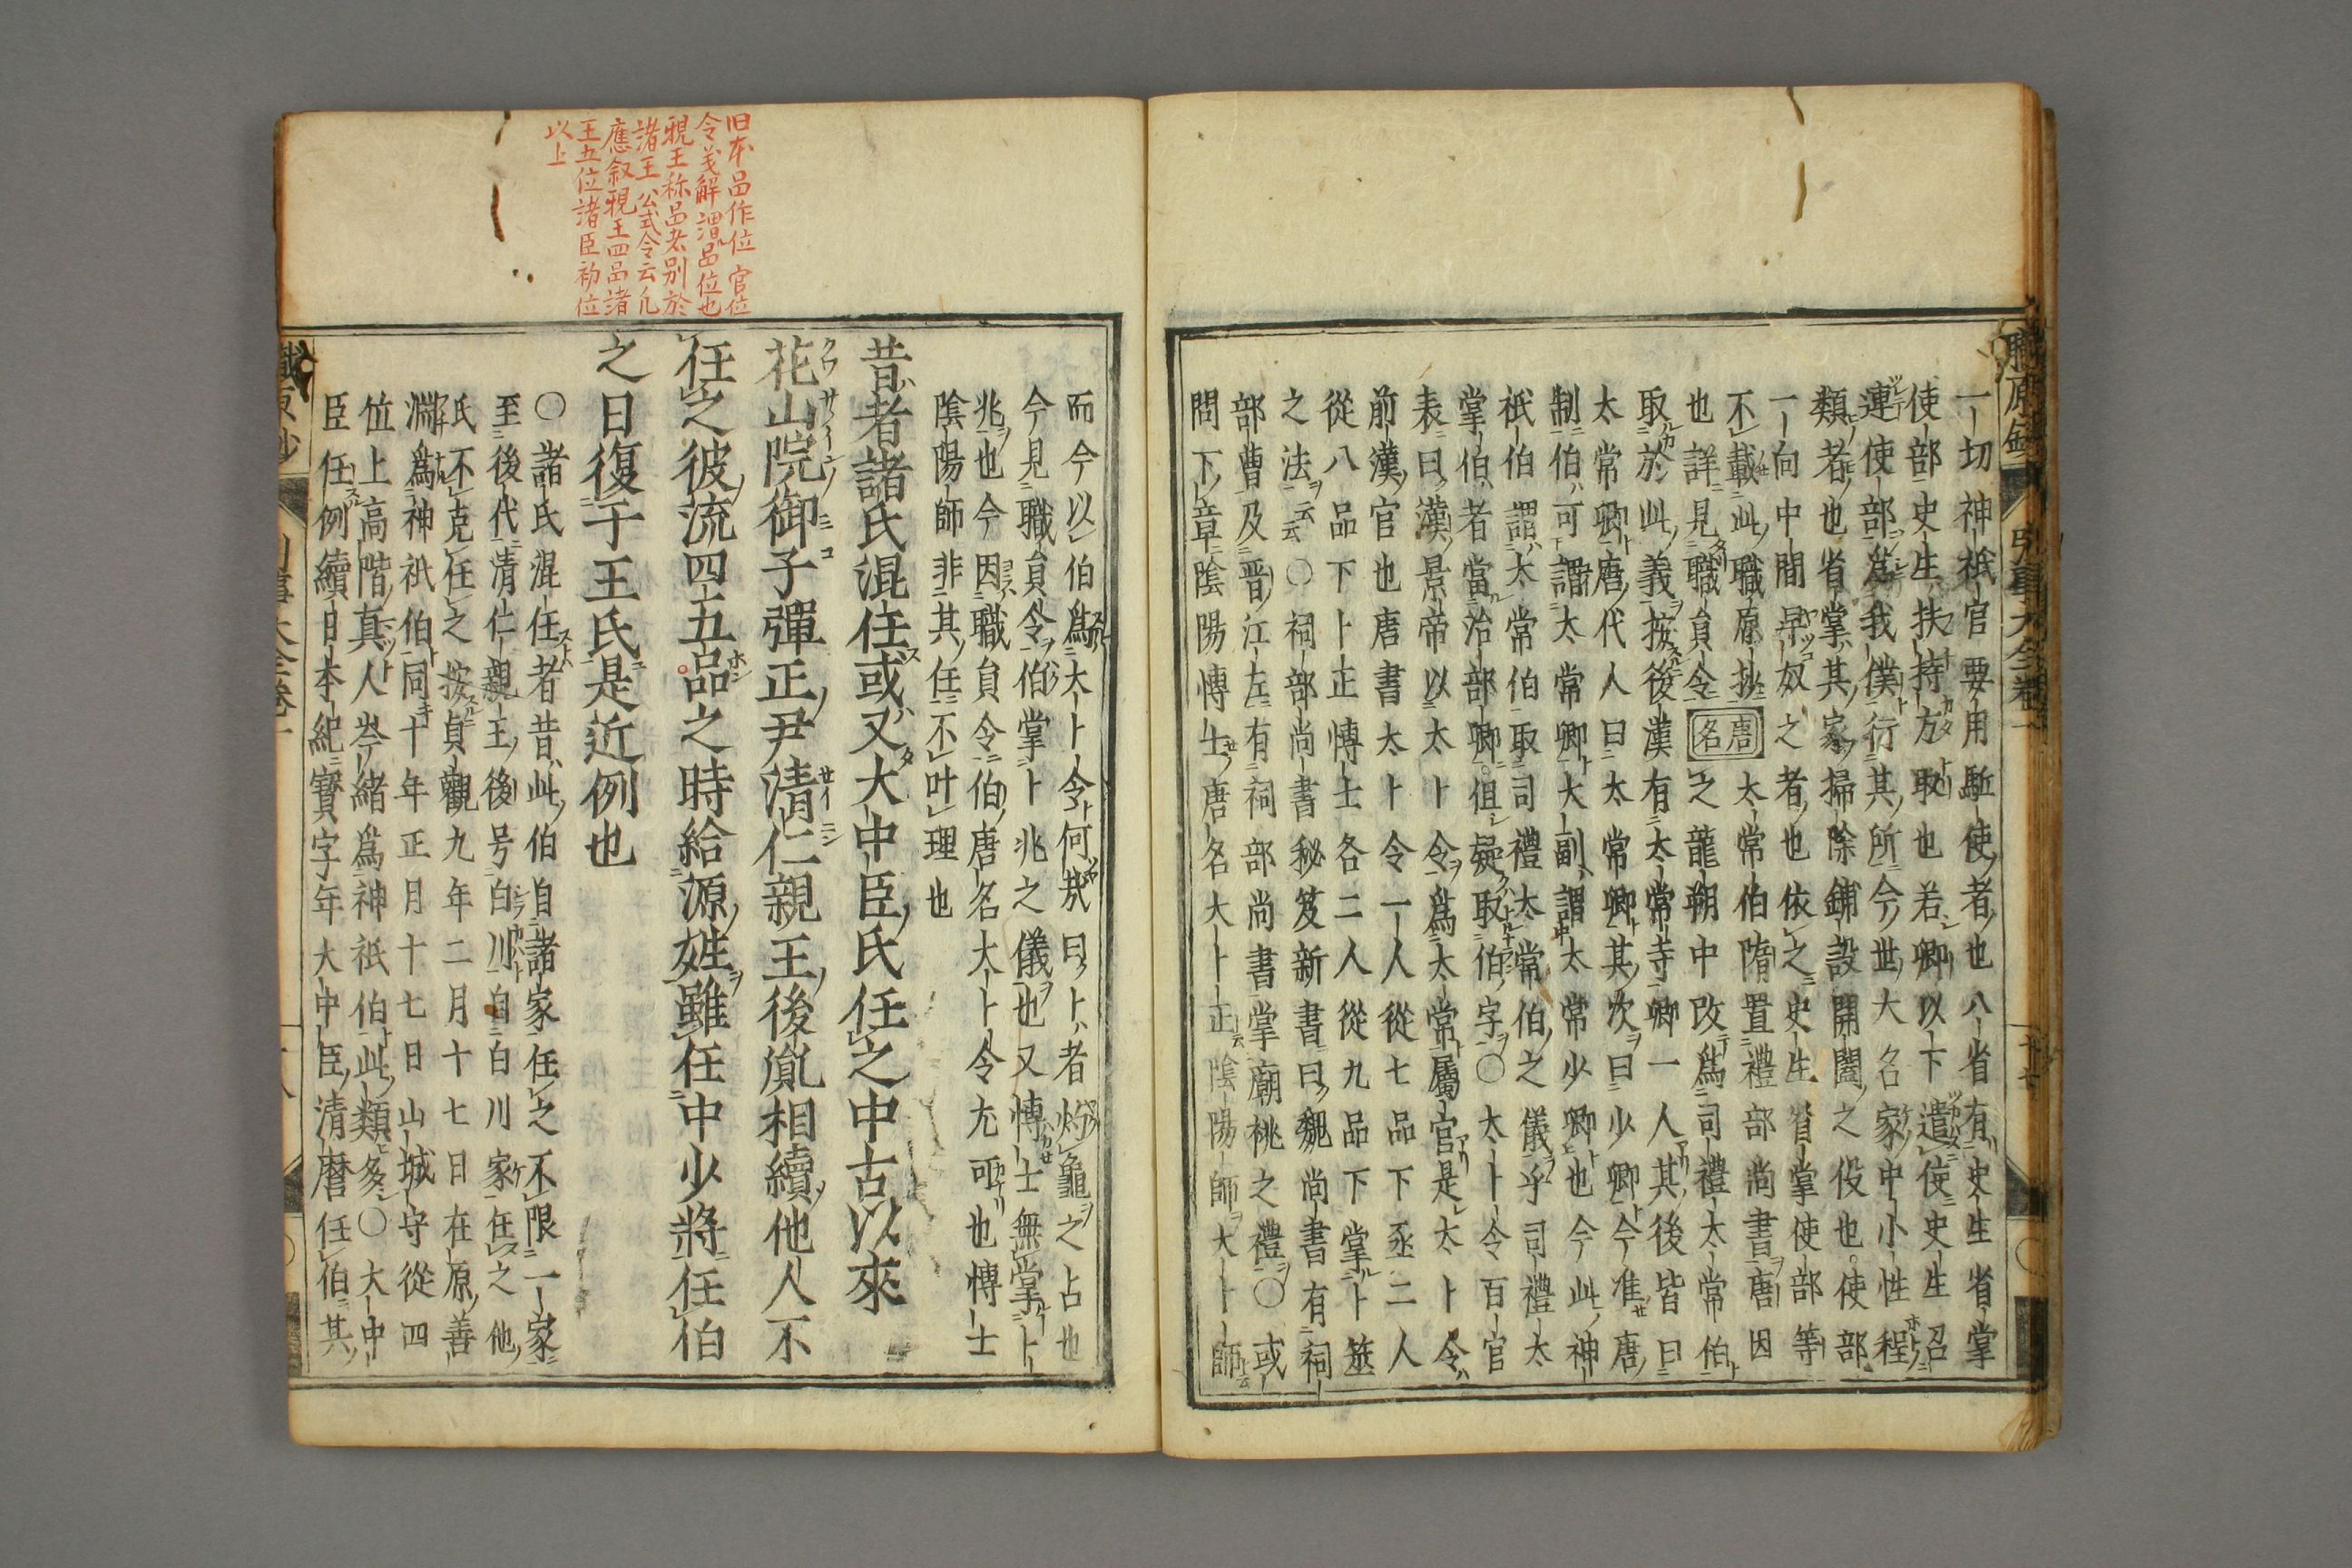 一切神祇官要用駈使者也八省有史生省掌
使部史生扶持方取也若卿以下遣使史生召
連使部爲我僕行其所今世大名家中小性程
類者也省掌其家掃除鋪設開闔之役也使部
一向中間早奴之者也依之史生省掌使部等
不載此職原抄太常伯隋置禮部尚書唐因
也詳見職員令
唐名
之龍朔中改爲司禮太常伯
取於此義按後漢有太常寺卿一人其後皆曰
太常卿唐代人曰太常卿其次曰少卿今准唐
制伯可謂太常卿大副謂太常少卿也今此神
祇伯謂太常伯取司禮太常伯之儀乎司禮太
掌伯者當治部卿但疑取伯字○太卜令百官
表曰漢景帝以太卜令爲太常屬官是太卜令
前漢官也唐書太卜令一人從七品下丞二人
從八品下卜正博士各二人從九品下掌卜筮
之法云云○祠部尚書秘笈新書曰魏尚書有祠
部曹及晋江左有祠部尚書掌廟桃之禮○或
問下章陰陽博士唐名大卜正陰陽師大卜師
而今以伯爲太卜令何哉曰卜者灼龜之占也
今見職員令伯掌卜兆之儀也又博士無掌卜
兆也今因職員令伯唐名大卜令尤可也博士
陰陽師非其任不叶理也
昔者諸氏混任或又大中臣氏任之中古以來
花山院御子彈正尹清仁親王後胤相續他人不
任之彼流四五品之時給源姓雖任中少將任伯
之日復于王氏是近例也
○諸氏混任者昔此伯自諸家任之不限一家
至後代清仁親王後号白川自白川家任之他
氏不克任之按貞觀九年二月十七日在原善
淵爲神祇伯同十年正月十七日山城守從四
位上高階真人岑緒爲神祇伯此類多○大中
臣任例續日本紀寳字年大中臣清麿任伯其
旧本品作位官位
令義解謂品位也
親王称品者別於
諸王公式令云凡
應叙親王四品諸
王五位諸臣初位
以上